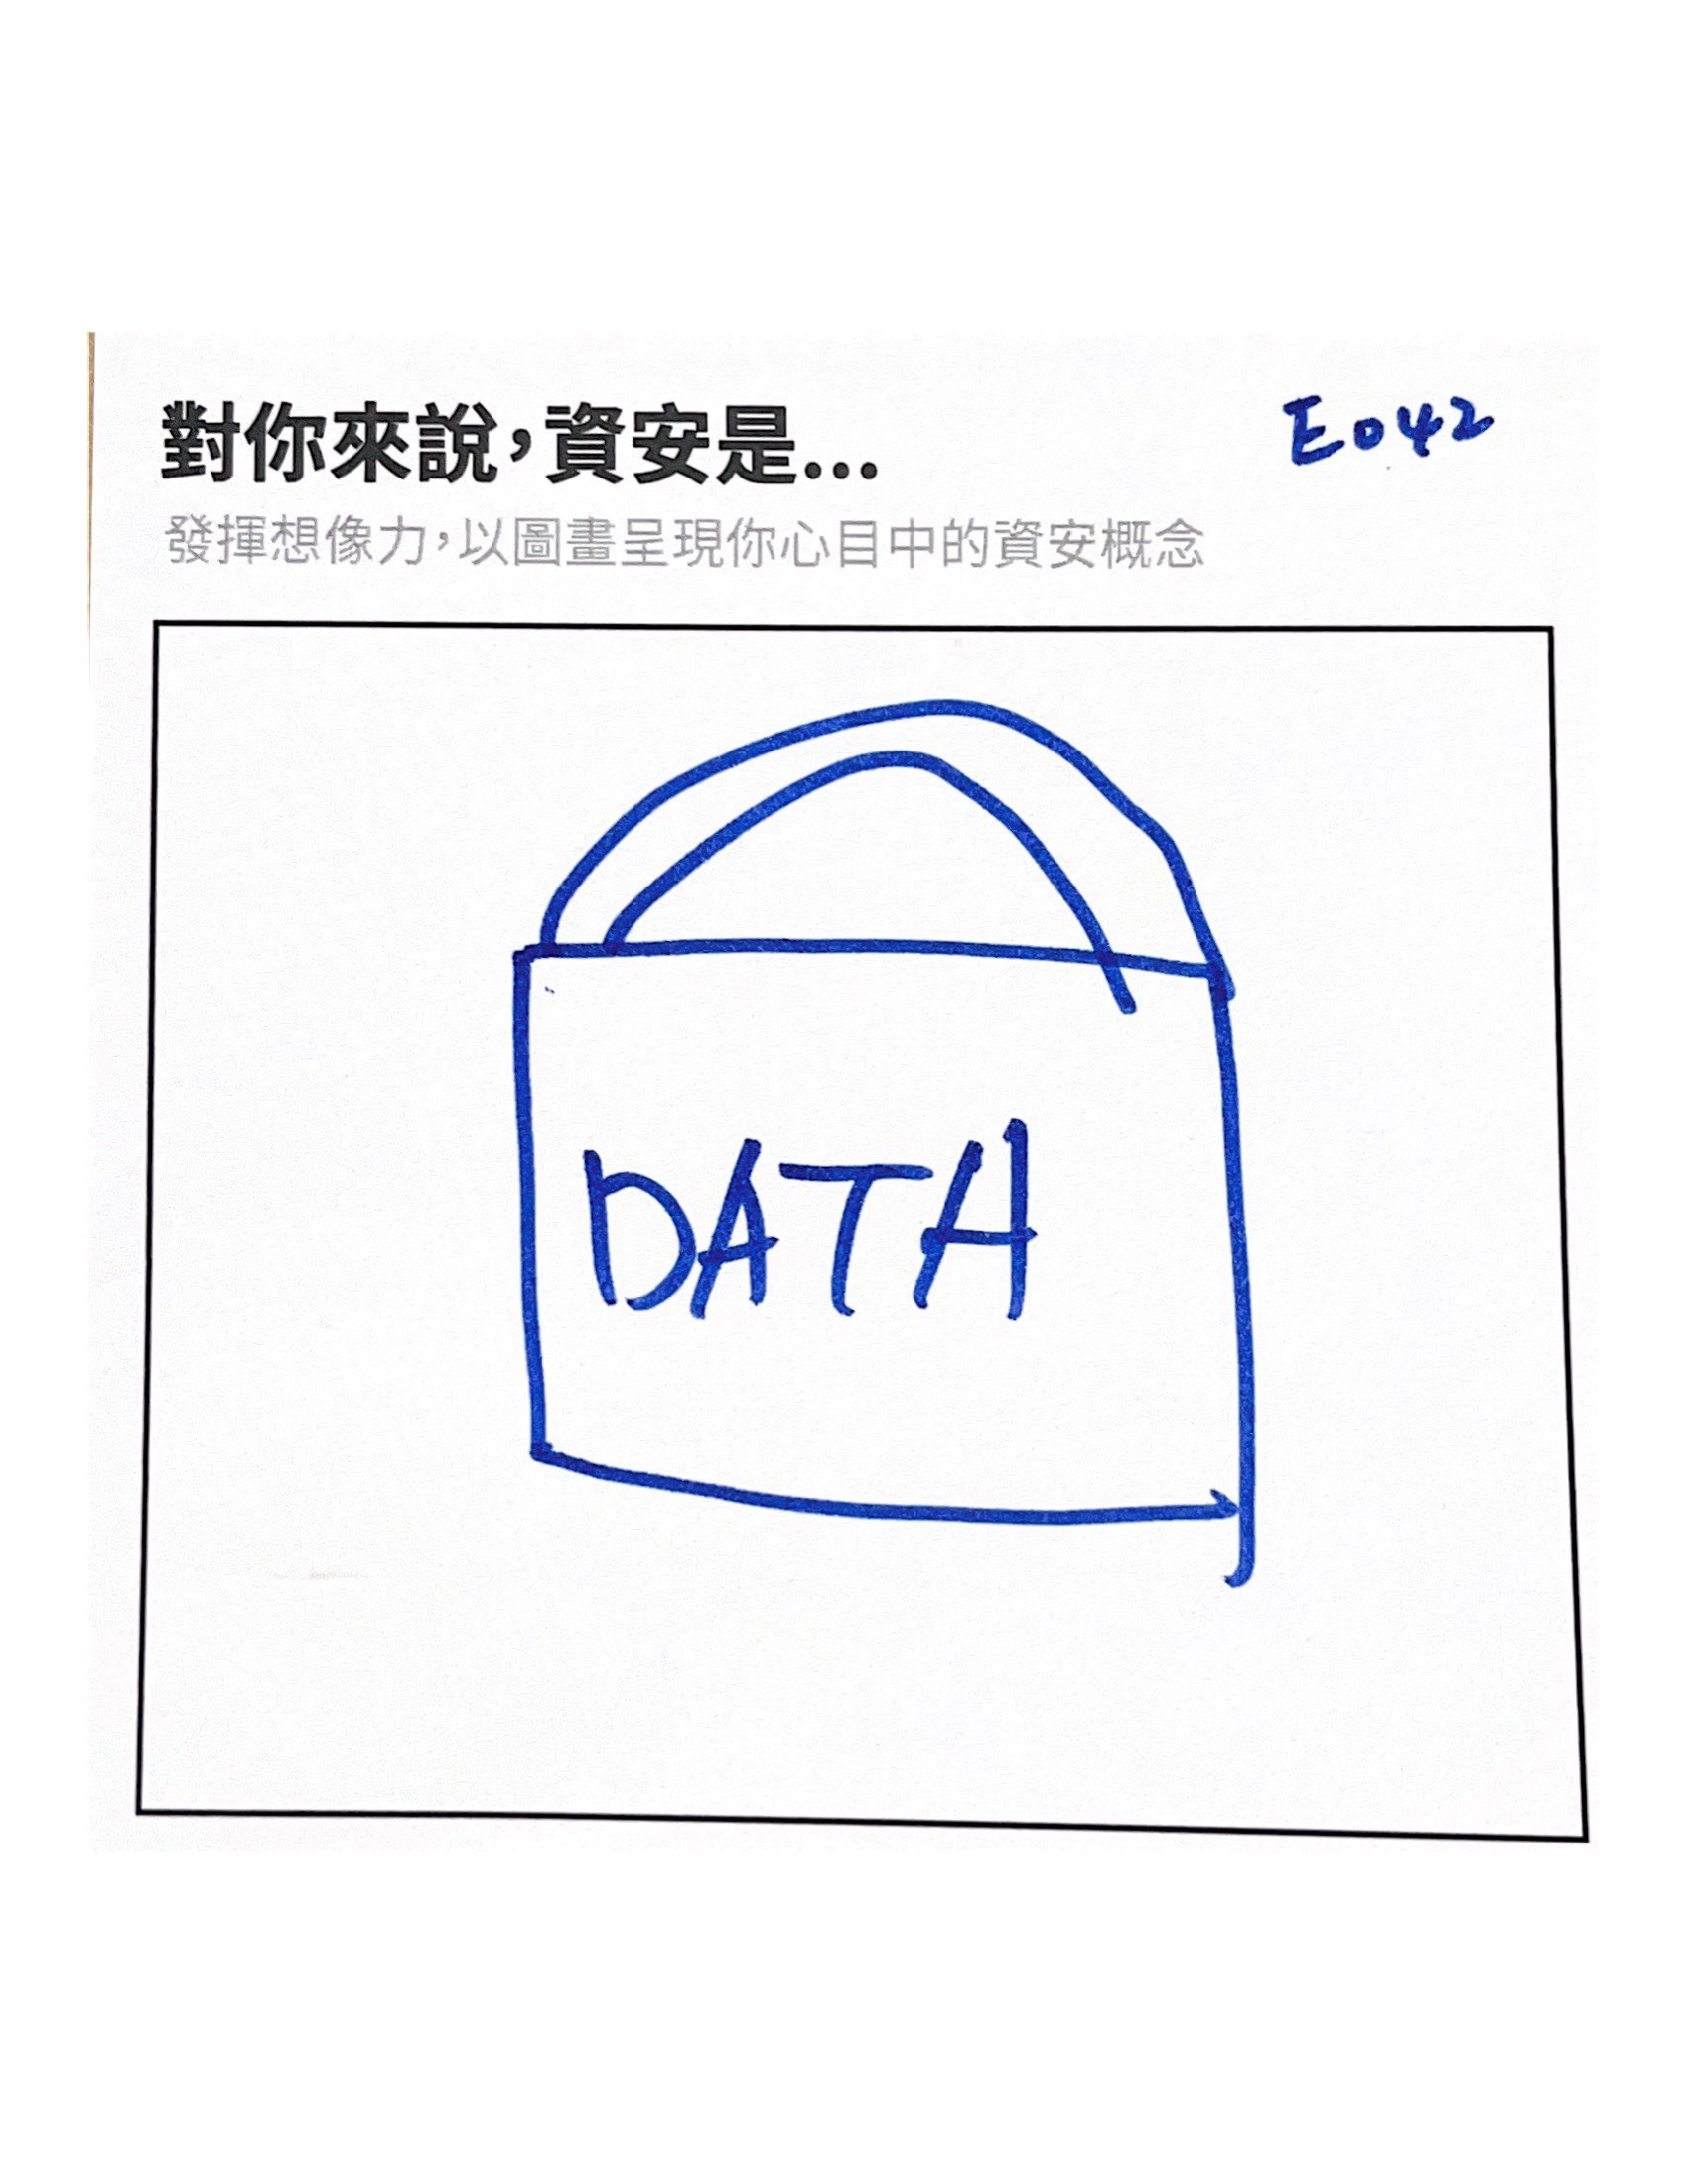 對你來說，資安是...
E042
發揮想像力，以圖畫呈現你心目中的資安概念
DATA